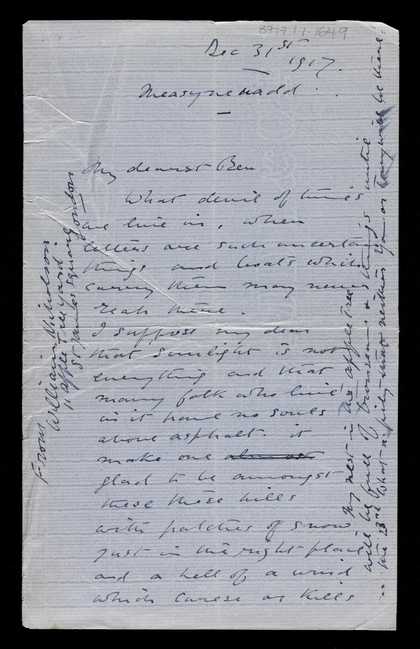 8717.1.1.1649
Dec 31st
1917.
My dearest Ben
What devil of times
we live in, when
letters are such uncertain
things and boats which
carry them may never
reach there.
I suppose my dear
that sunlight is not
everything and that
many folk who live
in it have no souls
above asphalt. it
make one almost
glad to be amongst
these hills
with patches of snow
just in the right place
and a hell of a wind
which curese as kills
From
William Nicholson
11 Apple Tree Yard.
St James Square London
My nest in the apple tree
will be full of